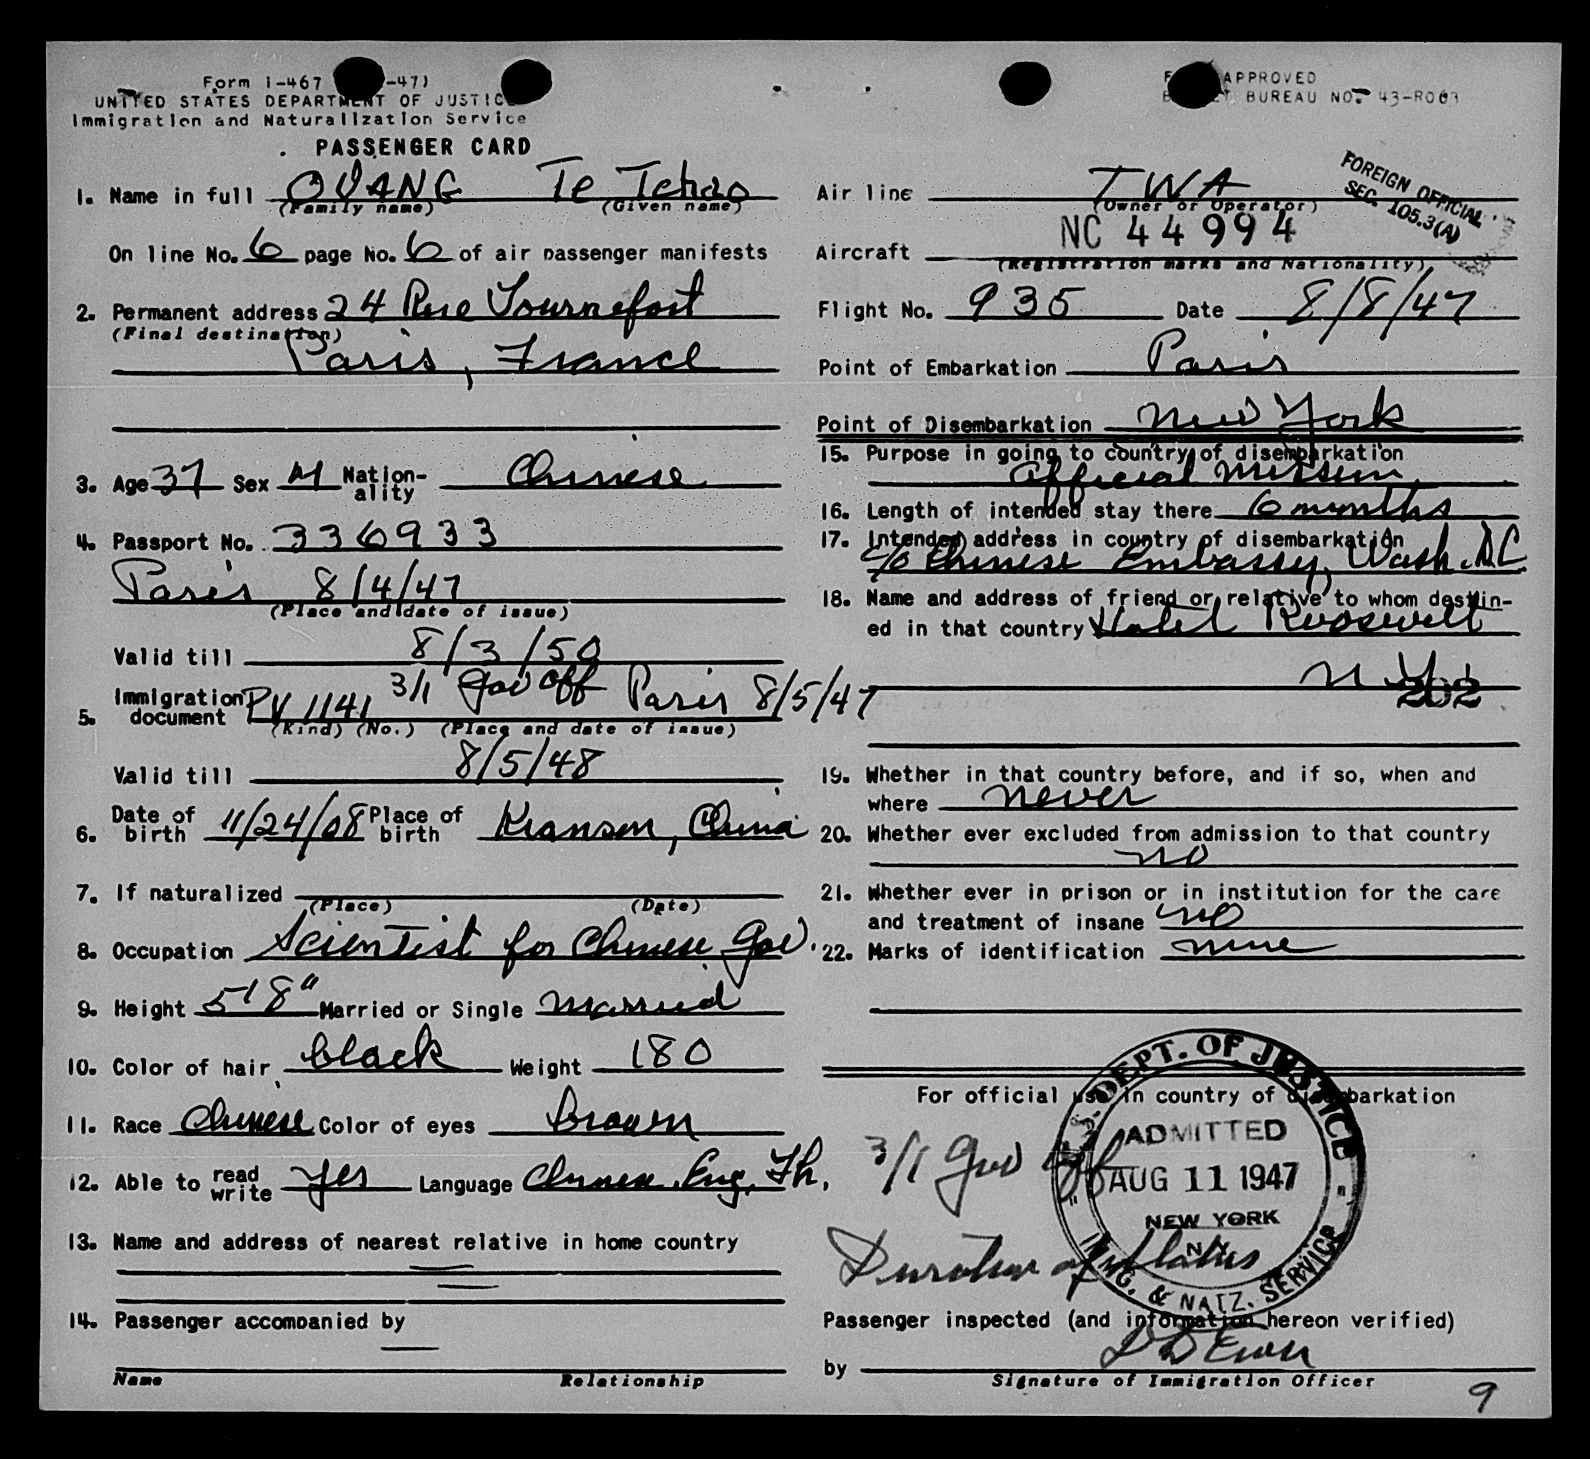 Form I-467 -47)
UNITED STATES DEPARTMENT OF JUSTICE
Immigration and Naturalization Service
PASSENGER CARD
1. Name in full OUANG Te Tchao
(Family name) (Given name)
On line No. 6 page No. 6 of air passenger manifests
2. Permanent address 24 Rue Tournefort
(Final destination)
Paris, France
3. Age 37 Sex M Nationality Chinese
4. Passport No. 336933
Paris 8/4/47
(Place and date of issue)
Valid till 8/3/50
5. Immigration document PV 1141 3/1 Gov Off Paris 8/5/47
(Kind) (No.) (Place and date of issue)
Valid till 8/5/48
6. Date of birth 11/24/08 Place of birth Kiansu, China
7. If naturalized
(Place) (Date)
8. Occupation Scientist for Chinese Gov.
9. Height 5'8" Married or Single Married
10. Color of hair black Weight 180
11. Race Chinese Color of eyes brown
12. Able to read write yes Language Chinese, Eng, Fh.
13. Name and address of nearest relative in home country
14. Passenger accompanied by
Name Relationship
APPROVED
BUREAU NO. 43-R063
FOREIGN OFFICIAL
SEC. 105.3(A)
Air line TWA
(Owner or Operator)
Aircraft NC 44994
(Registration marks and Nationality)
Flight No. 935 Date 8/8/47
Point of Embarkation Paris
Point of Disembarkation New York
15. Purpose in going to country of disembarkation
Official Mission
16. Length of intended stay there 6 months
17. Intended address in country of disembarkation
c/o Chinese Embassy, Wash. DC
18. Name and address of friend or relative to whom destin-
ed in that country Hotel Roosevelt
N.Y.
202
19. Whether in that country before, and if so, when and
where never
20. Whether ever excluded from admission to that country
no
21. Whether ever in prison or in institution for the care
and treatment of insane no
22. Marks of identification none
For official use in country of disembarkation
3/1 Gov Off
Duration of Status
U.S. DEPT. OF JUSTICE
ADMITTED
AUG 11 1947
NEW YORK
N.Y.
IMMG. & NATZ. SERVICE
Passenger inspected (and information hereon verified)
by
Signature of Immigration Officer
9